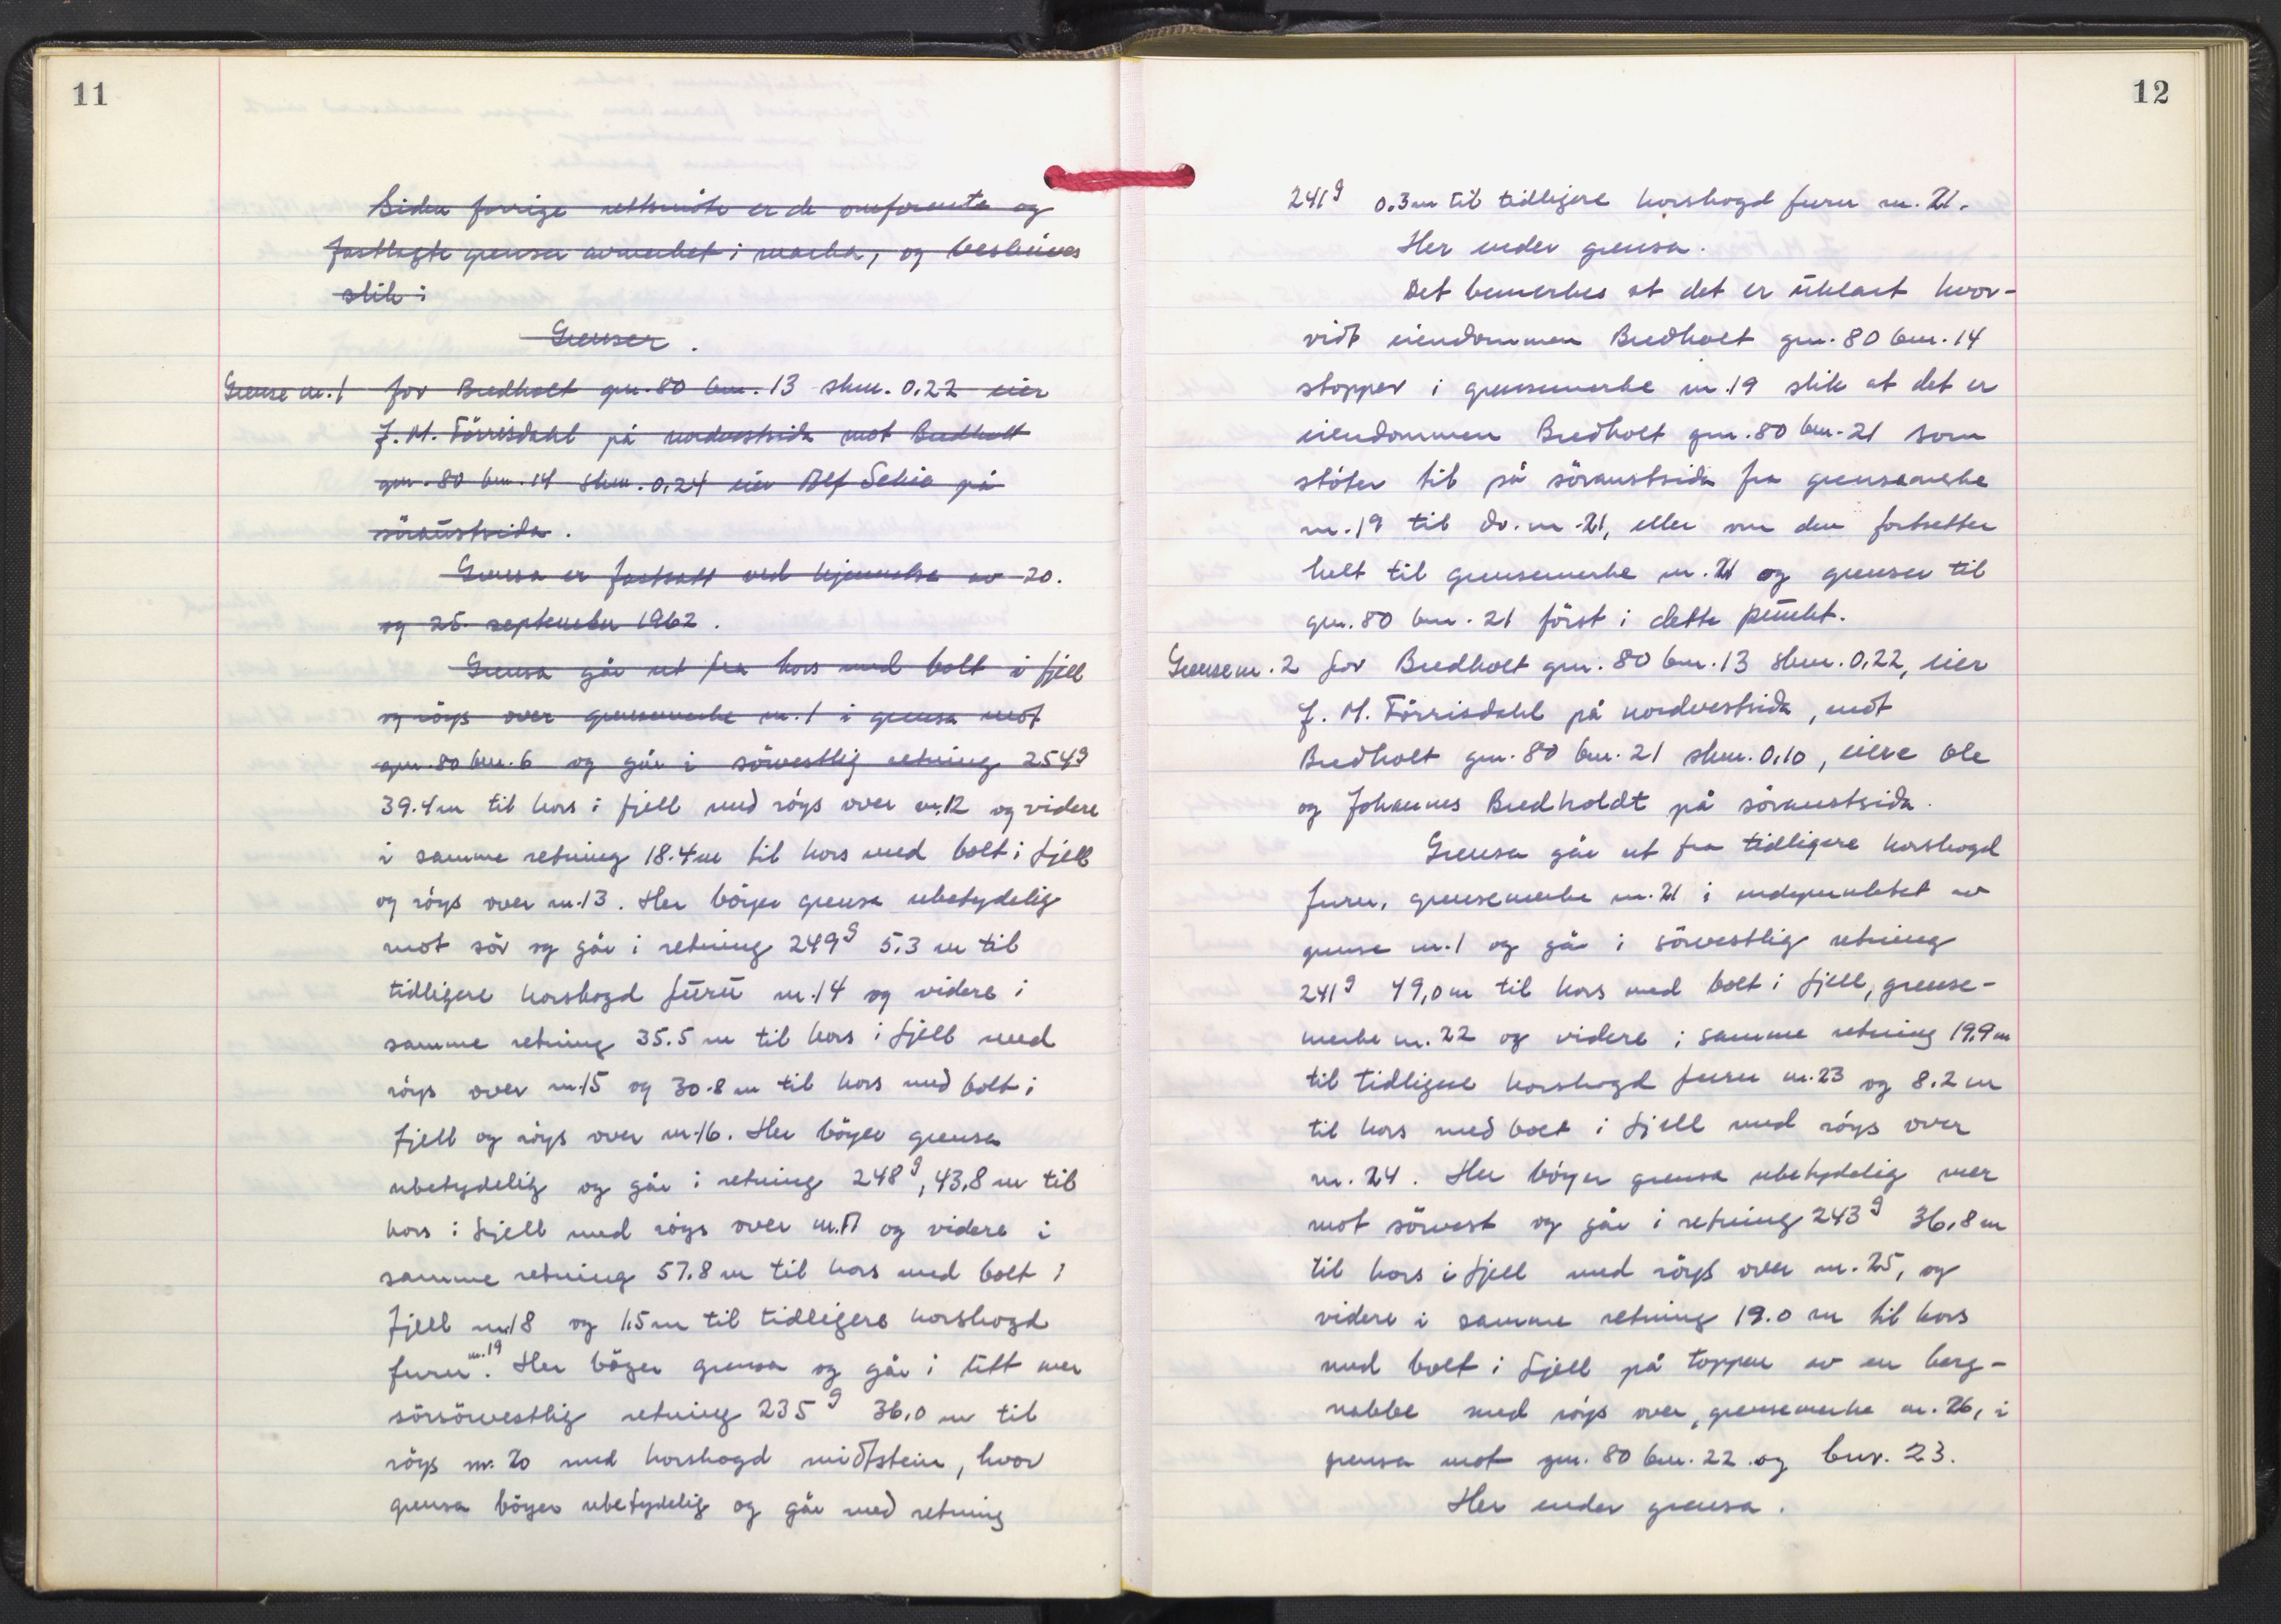 11
Siden forrige rettsmöte er de omforente og
fastlagte grenser avmerket i marka, og beskrives
slik:
Grenser.
Grense nr. 1 for Bredholt gnr. 80 bnr. 13 sknr. 0,22 eier
J. M. Törrisdahl på nordvestsida mot Bredholt
gnr. 80 bnr. 14 sknr. 0,24 eier Alf Schia på
söraustsida.
Grensa er fastsatt ved kjennelse av 20.
og 25. september 1962.
Grensa går ut fra kors med bolt i fjell
og röys over grensemerke nr. 1 i grensa mot
gnr. 80 bnr. 6 og går i sörvestlig retning 254g
39.4 m til kors i fjell med röys over nr. 12 og videre
i samme retning 18.4 m til kors med bolt i fjell
og röys over nr. 13. Her böyer grensa ubetydelig
mot sör og går i retning 249g 5.3 m til
tidligere korshogd furu nr. 14 og videre i
samme retning 35.5 m til kors i fjell med
röys over nr. 15 og 30.8 m til kors med bolt i
fjell og röys over nr. 16. Her böyer grensa
ubetydelig og går i retning 248g, 43,8 m til
kors i fjell med röys over nr. 17 og videre i
samme retning 57.8 m til kors med bolt i
fjell nr. 18 og 1.5 m til tidligere korshogd
furu nr. 19. Her böyer grensa og går i litt mer
sörsörvestlig retning 235g 36,0 m til
röys nr. 20 med korshogd midtstein, hvor
grensa böyer ubetydelig og går med retning
12
241g 0.3 m til tidligere korshogd furu nr. 21.
Her ender grensa.
Det bemerkes at det er uklart hvor-
vidt eiendommen Bredholt gnr. 80 bnr. 14
stopper i grensemerke nr. 19 slik at det er
eiendommen Bredholt gnr. 80 bnr. 21 som
stöter til på söraustsida fra grensemerke
nr. 19 til do. nr. 21, eller om den fortsetter
helt til grensemerke nr. 21 og grenser til
gnr. 80 bnr. 21 först i dette punktet.
Grense nr. 2 for Bredholt gnr. 80 bnr. 13 sknr. 0,22, eier
J. M. Törrisdahl på nordvestsida, mot
Bredholt gnr. 80 bnr. 21 sknr. 0,10, eiere Ole
og Johannes Bredholdt på söraustsida.
Grensa går ut fra tidligere korshogd
furu, grensemerke nr. 21 i endepunktet av
grense nr. 1 og går i sörvestlig retning
241g 49,0 m til kors med bolt i fjell, grense-
merke nr. 22 og videre i samme retning 19.9 m
til tidligere korshogd furu nr. 23 og 8.2 m
til kors med bolt i fjell med röys over
nr. 24. Her böyer grensa ubetydelig mer
mot sörvest og går i retning 243g 36,8 m
til kors i fjell med röys over nr. 25, og
videre i samme retning 19.0 m til kors
med bolt i fjell på toppen av en berg-
nabbe med röys over, grensemerke nr. 26, i
grensa mot gnr. 80 bnr. 22 og bnr. 23.
Her ender grensa.